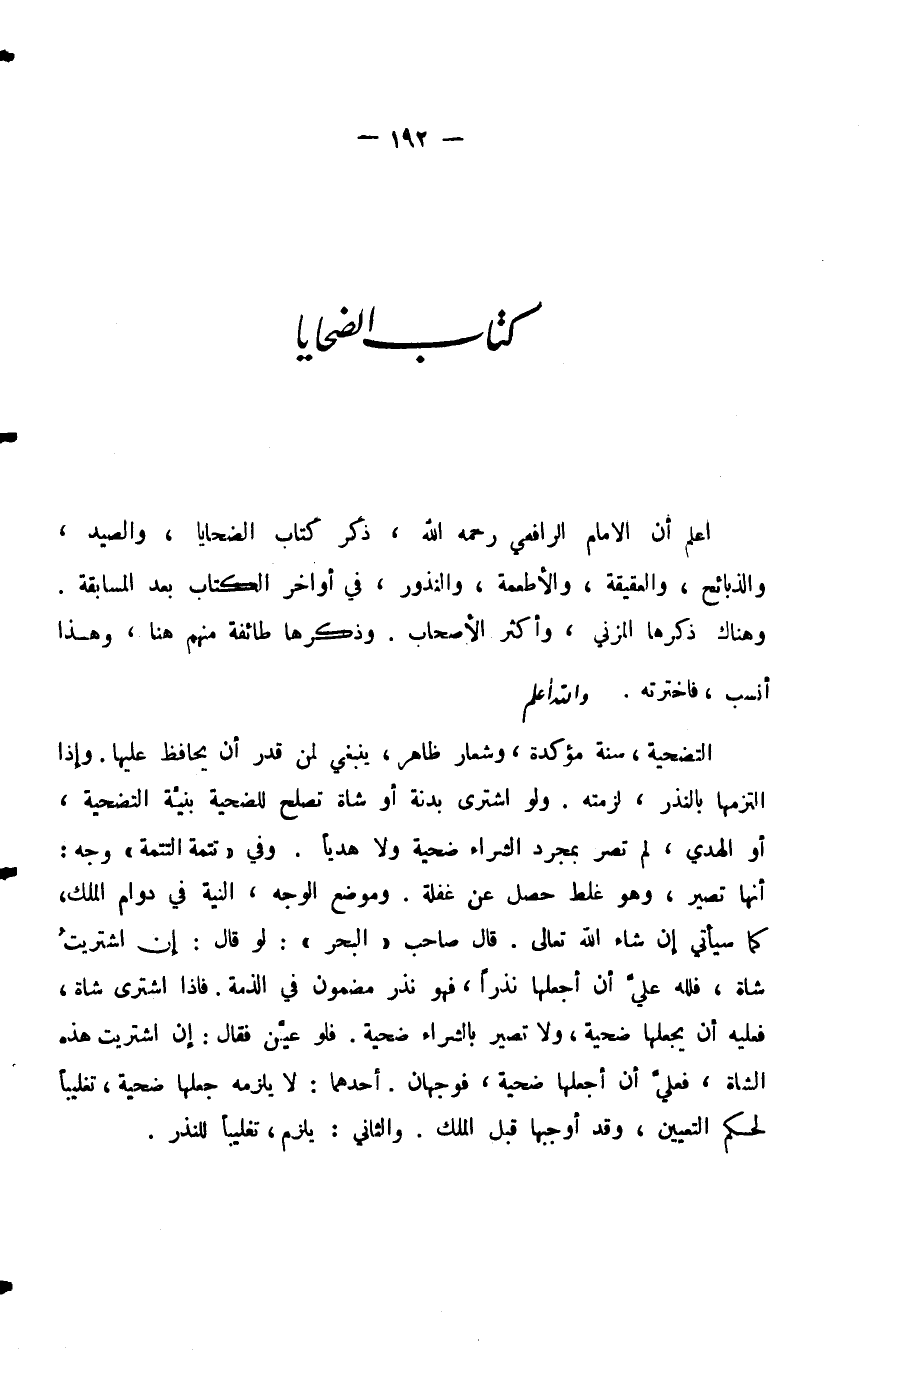 — ١٩٢ —
كتاب الضحايا
اعلم أن الامام الرافعي رحمه الله ، ذكر كتاب الضحايا ، والصيد ،
والذبائح ، والعقيقة ، والأطعمة ، والنذور ، في أواخر الكتاب بعد المسابقة .
وهناك ذكرها المزني ، وأكثر الأصحاب . وذكرها طائفة منهم هنا ، وهـذا
أنسب ، فاخترته . والله أعلم
التضحية ، سنة مؤكدة ، وشعار ظاهر ، ينبغي لمن قدر أن يحافظ عليها . وإذا
التزمها بالنذر ، لزمته . ولو اشترى بدنة أو شاة تصلح للضحية بنيَّة التضحية ،
أو الهدي ، لم تصر بمجرد الشراء ضحية ولا هدياً . وفي « تتمة التتمة » وجه :
أنها تصير ، وهو غلط حصل عن غفلة . وموضع الوجه ، النية في دوام الملك،
كما سيأتي إن شاء الله تعالى . قال صاحب « البحر » : لو قال : إن اشتريتُ
شاة ، فلله عليَّ أن أجعلها نذراً ، فهو نذر مضمون في الذمة . فاذا اشترى شاة ،
فعليه أن يجعلها ضحية ، ولا تصير بالشراء ضحية . فلو عيَّن فقال : إن اشتريت هذه
الشاة ، فعليَّ أن أجعلها ضحية ، فوجهان . أحدهما : لا يلزمه جعلها ضحية ، تغليباً
لحـكم التعيين ، وقد أوجبها قبل الملك . والثاني : يلزم ، تغليباً للنذر .